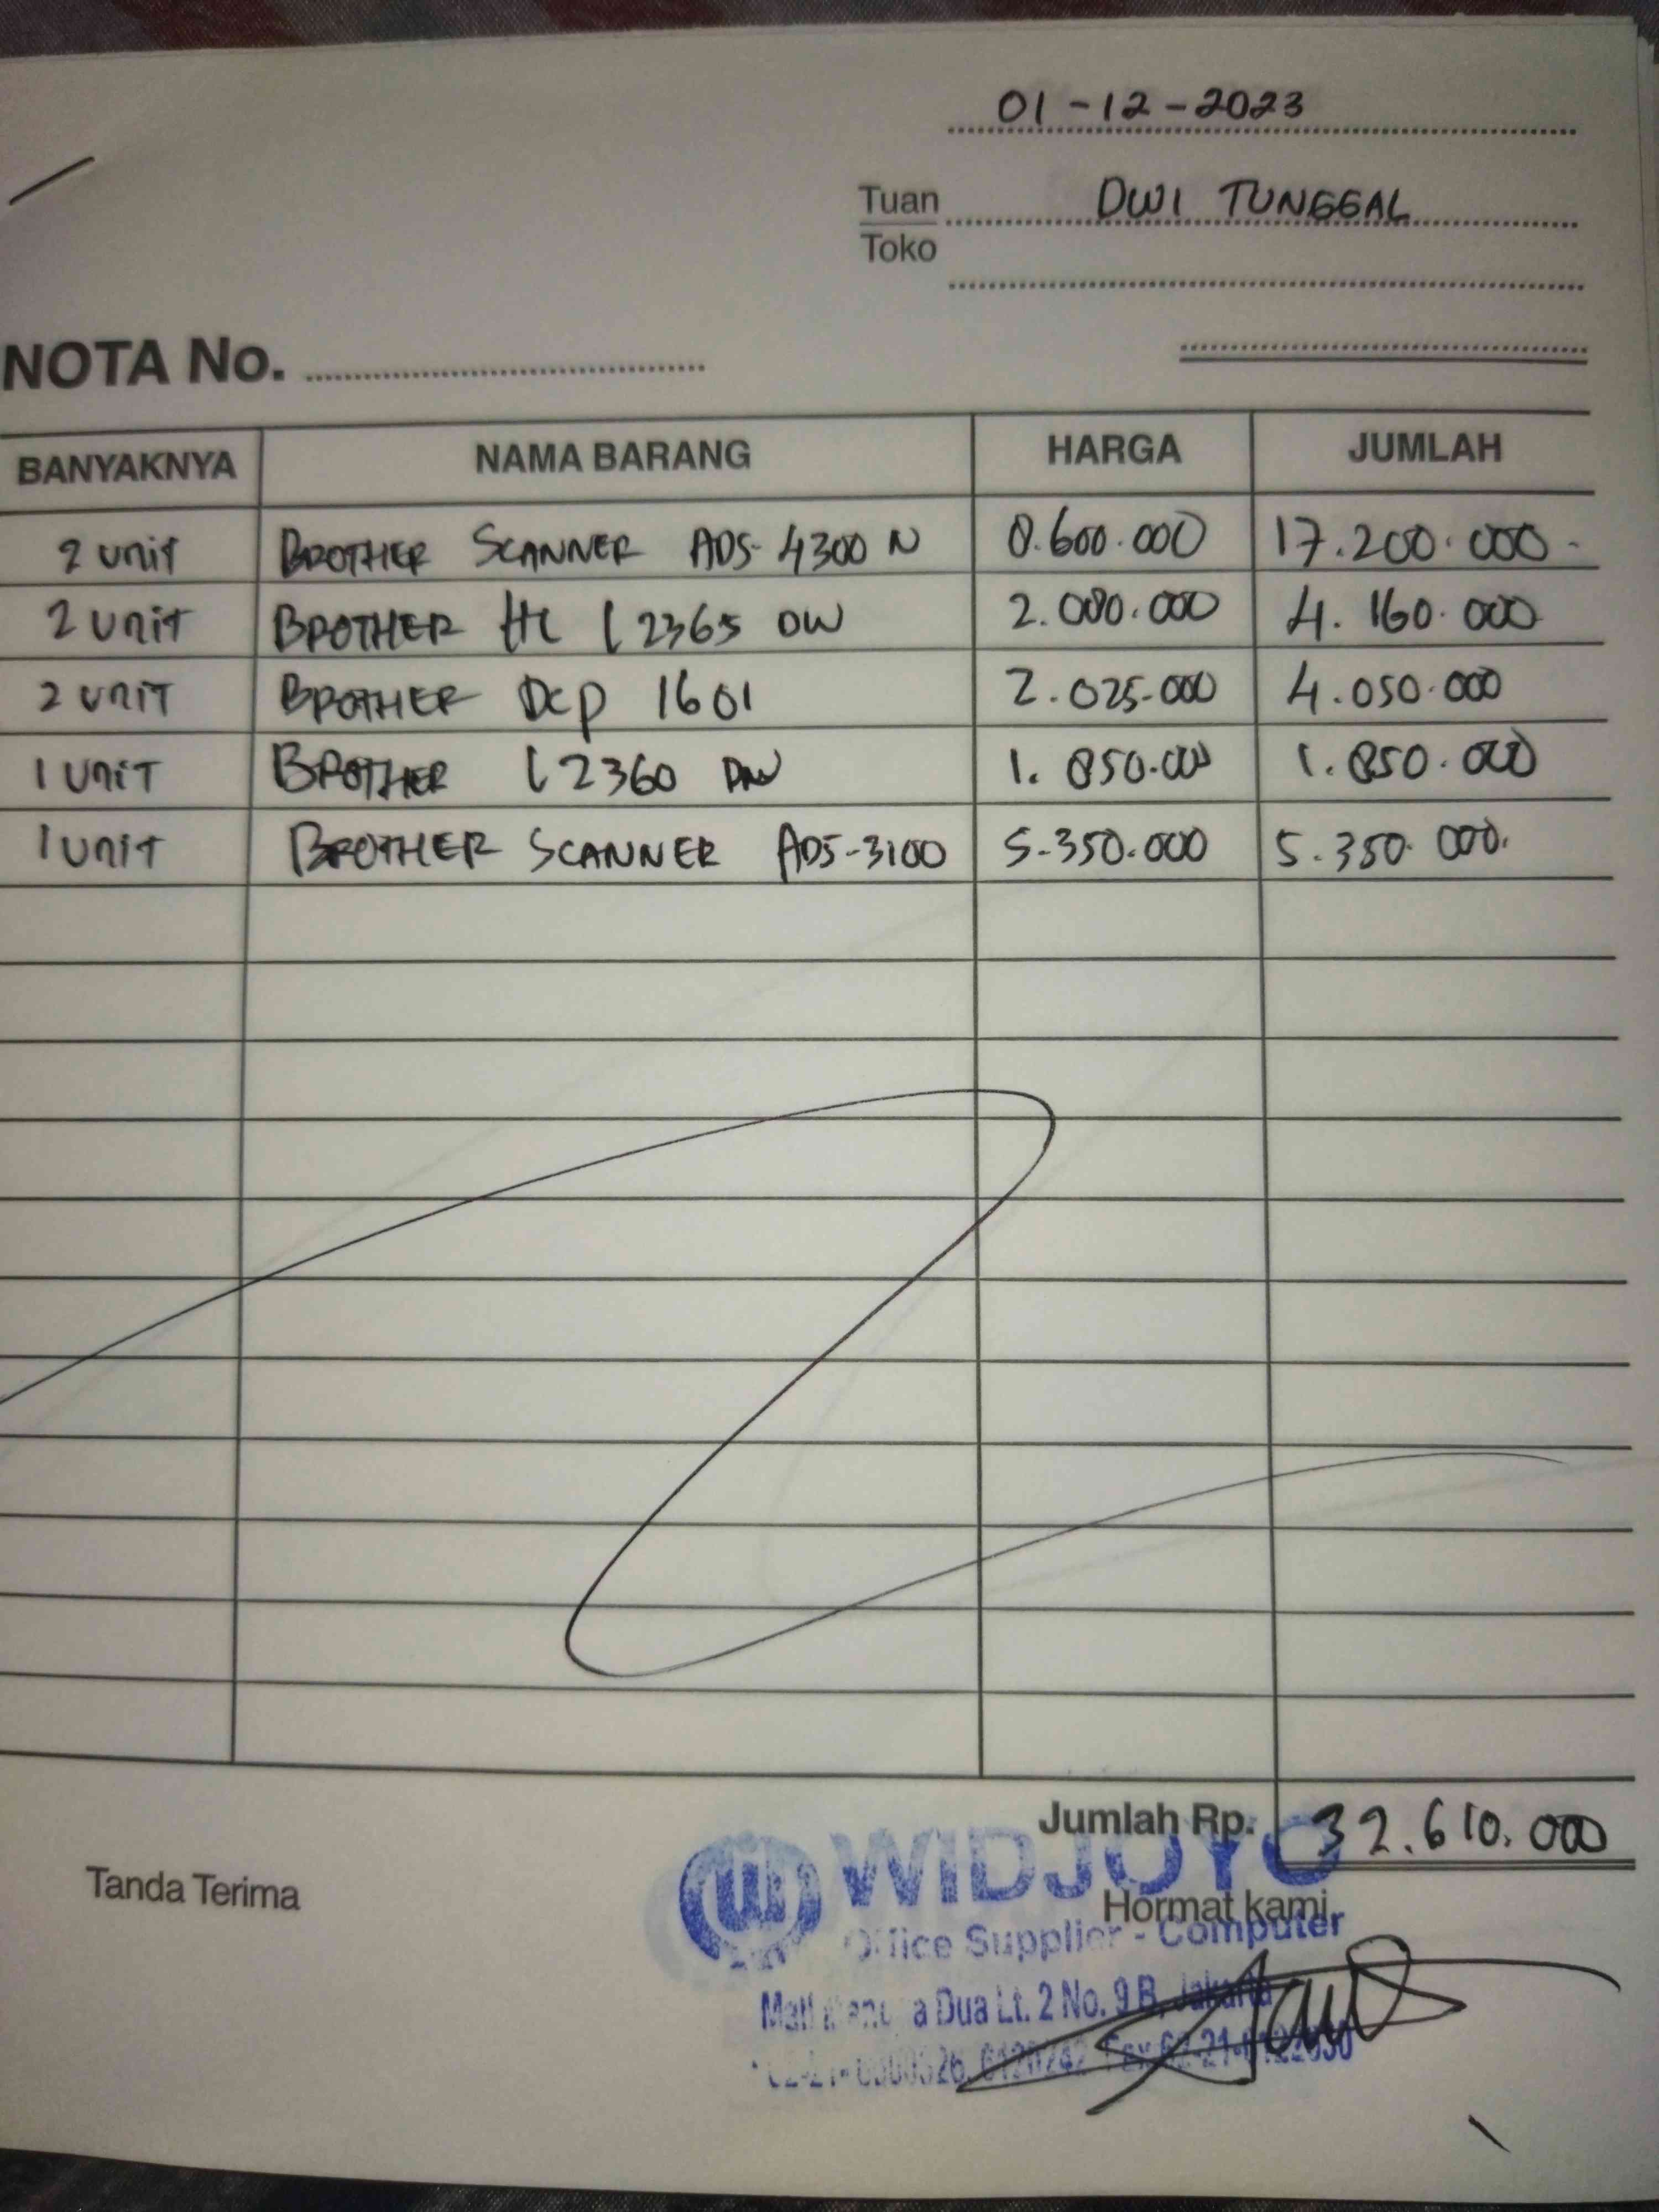 01-12-2023
Tuan DWI TUNGGAL
Toko
NOTA No.
BANYAKNYA NAMA BARANG HARGA JUMLAH
2 unit BROTHER SCANNER ADS-4300 N 8.600.000 17.200.000-
2 unit BROTHER HL L2365 DW 2.080.000 4.160.000
2 UNIT BROTHER DCP 1601 2.025.000 4.050.000
1 UNIT BROTHER L2360 DN 1.850.000 1.850.000
1 UNIT BROTHER SCANNER ADS-3100 5.350.000 5.350.000.
Jumlah Rp. 32.610.000
Tanda Terima
Hormat kami,
WIDJOYO
Office Supplier - Computer
Dua Lt. 2 No. 9 B, Jakarta